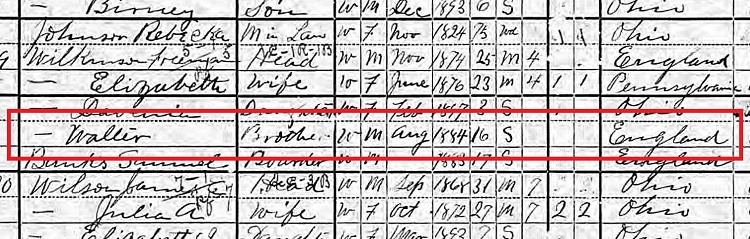 — Birney Son W M Dec 1893 6 S Ohio
Johnson Rebecka M in Law W F Nov 1824 75 Wd 1 1 Ohio
Wilkinson Head W M Nov 1874 25 M 4 England
— Elizabeth Wife W F June 1876 23 M 4 1 1 Pennsylvania
— Daughter W F Feb 1897 3 S Ohio
— Walter Brother W M Aug 1884 16 S England
Banks Samuel Boarder W M 1883 17 S England
Wilson Head W M Sep 1868 31 M 7 Ohio
— Julia A Wife W F Oct 1872 27 M 7 2 2 Ohio
— Elizabeth W F Mar 1893 7 S Ohio